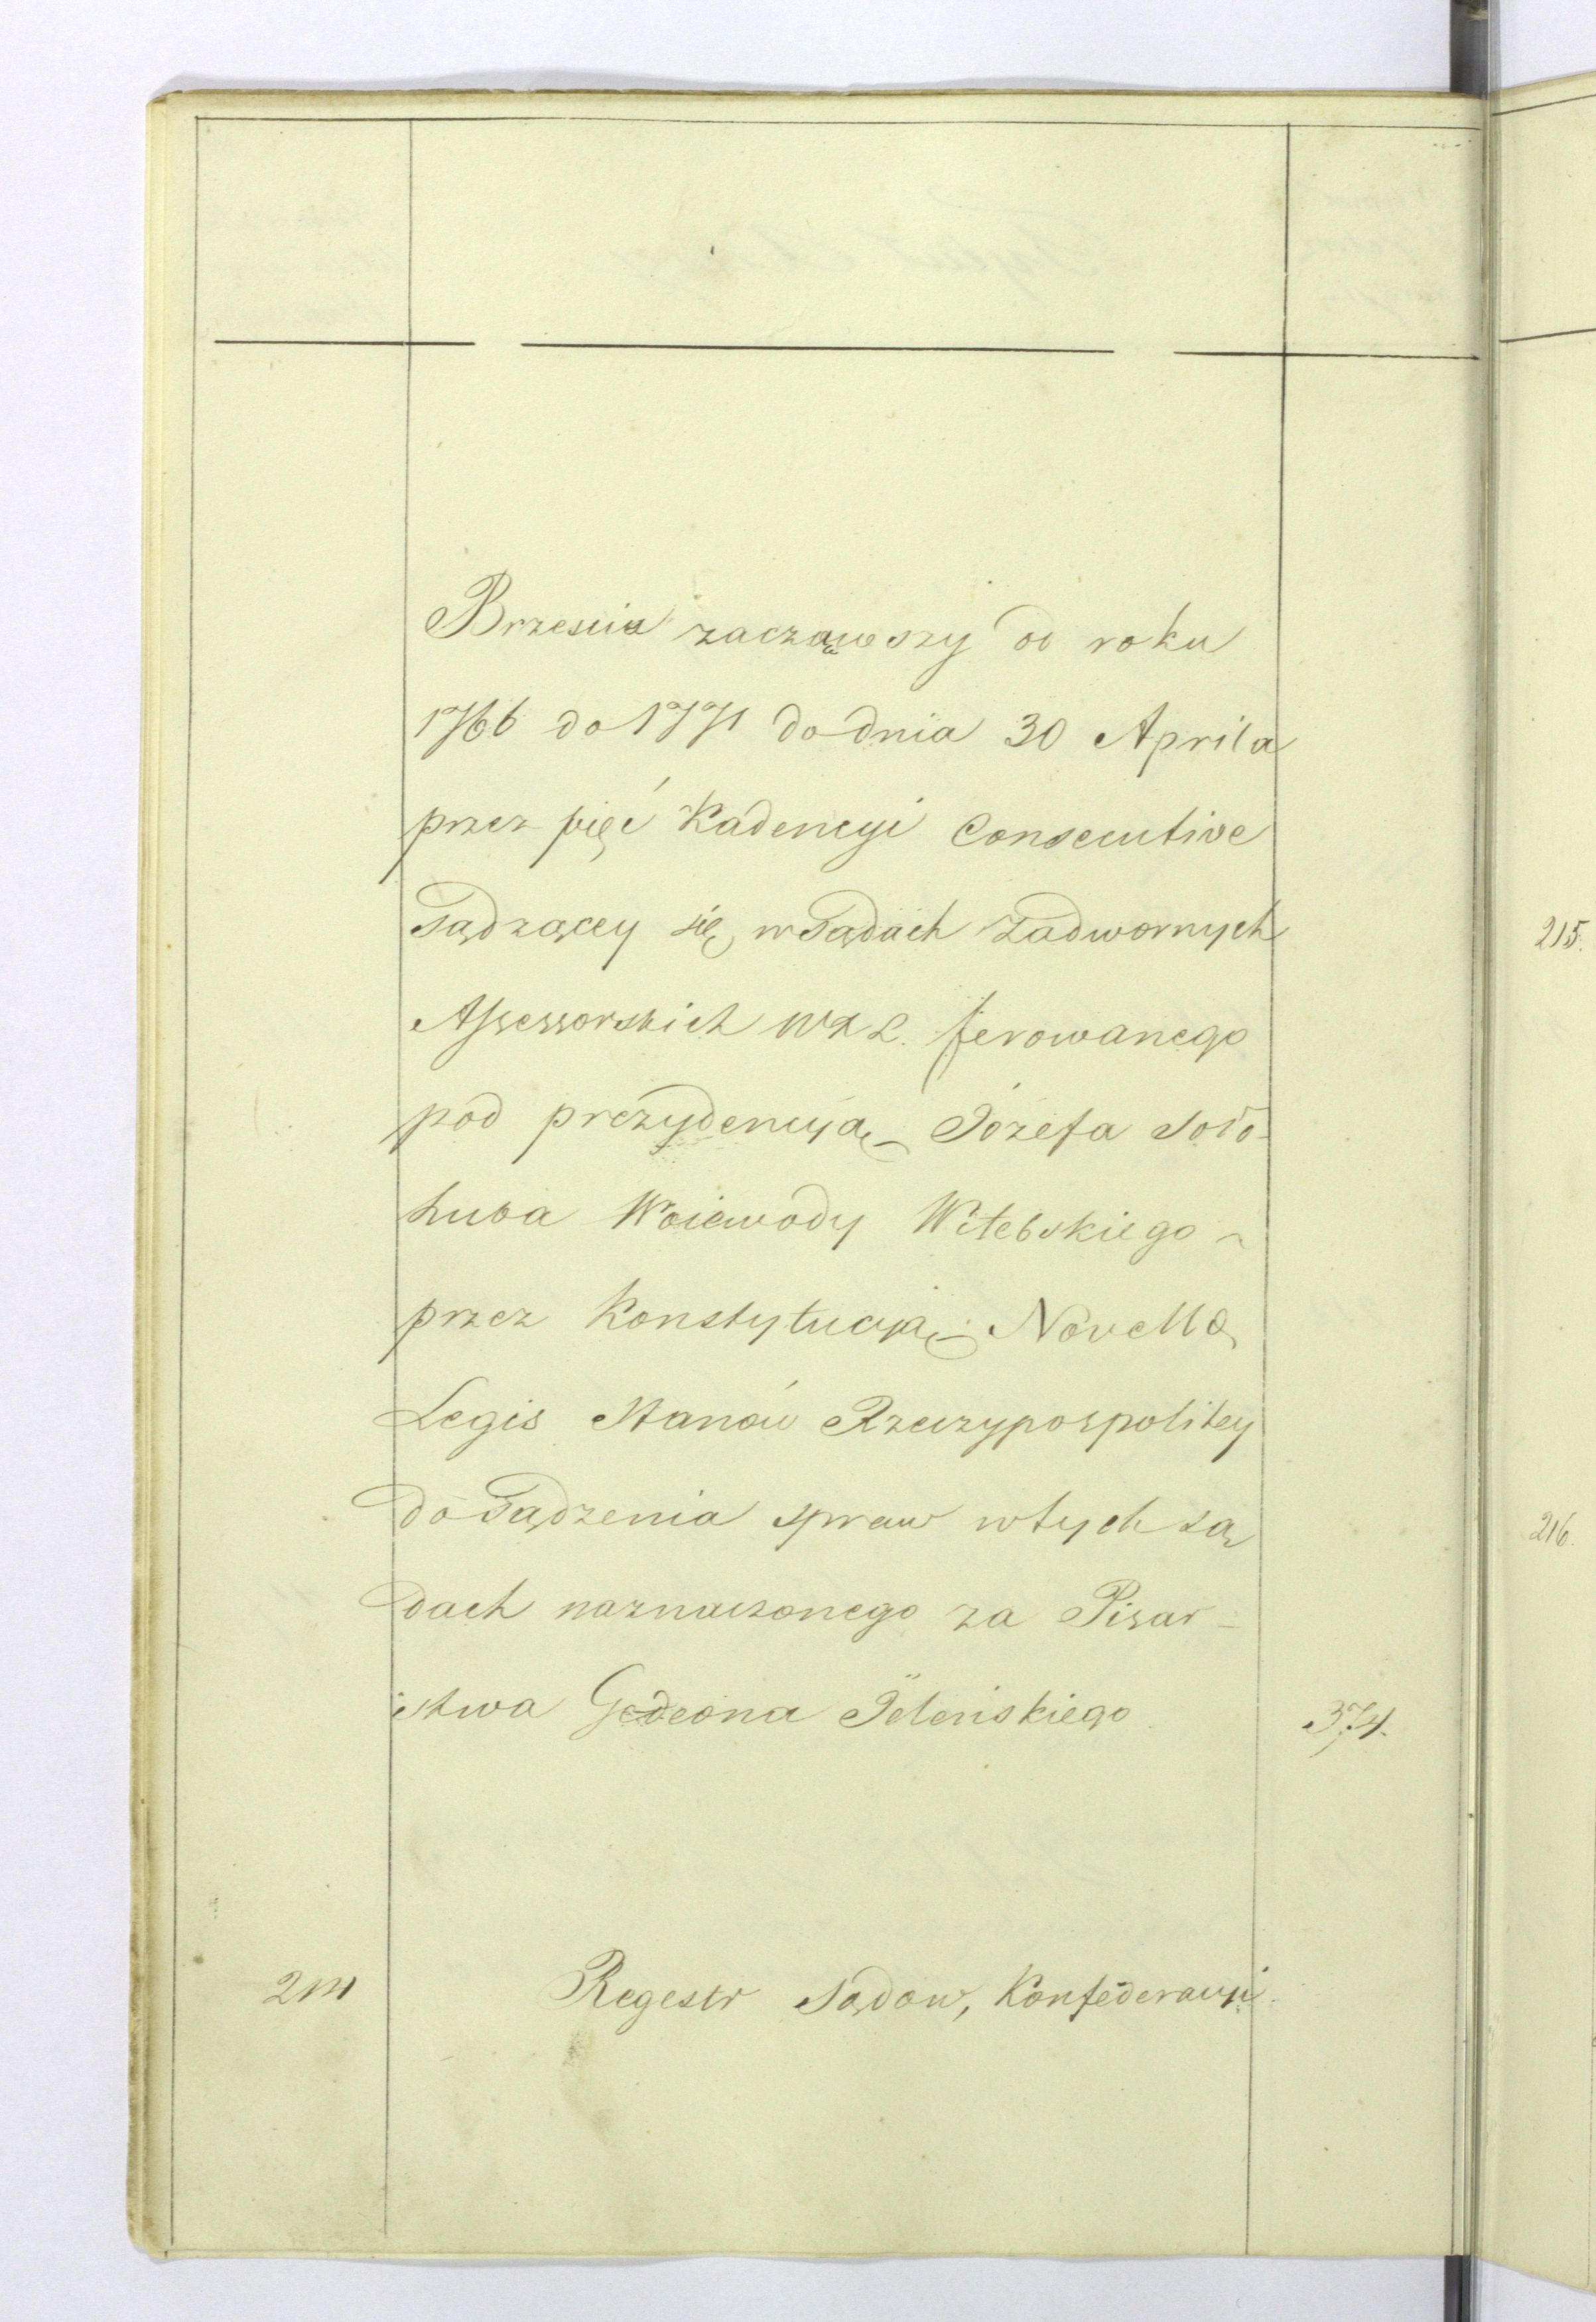 Brzescia zacząwszy od roku
1766 do 1771 do dnia 30 Aprila
przez pięć Kadencyi Consecutive
Sądzącey się w Sądach Zadwornych
Assessorskich W X L. ferowanego
pod prezydencyą Józefa Soło-
huba Woiewody Witebskiego
przez Konstytucyą Novella
Legis Stanów Rzeczypospolitey
do Sądzenia spraw w tych Są
dach naznaczonego za Pisar-
stwa Gedeona Jeleńskiego 374.
214 Regestr Sądow, Konfederacyi
215.
216.